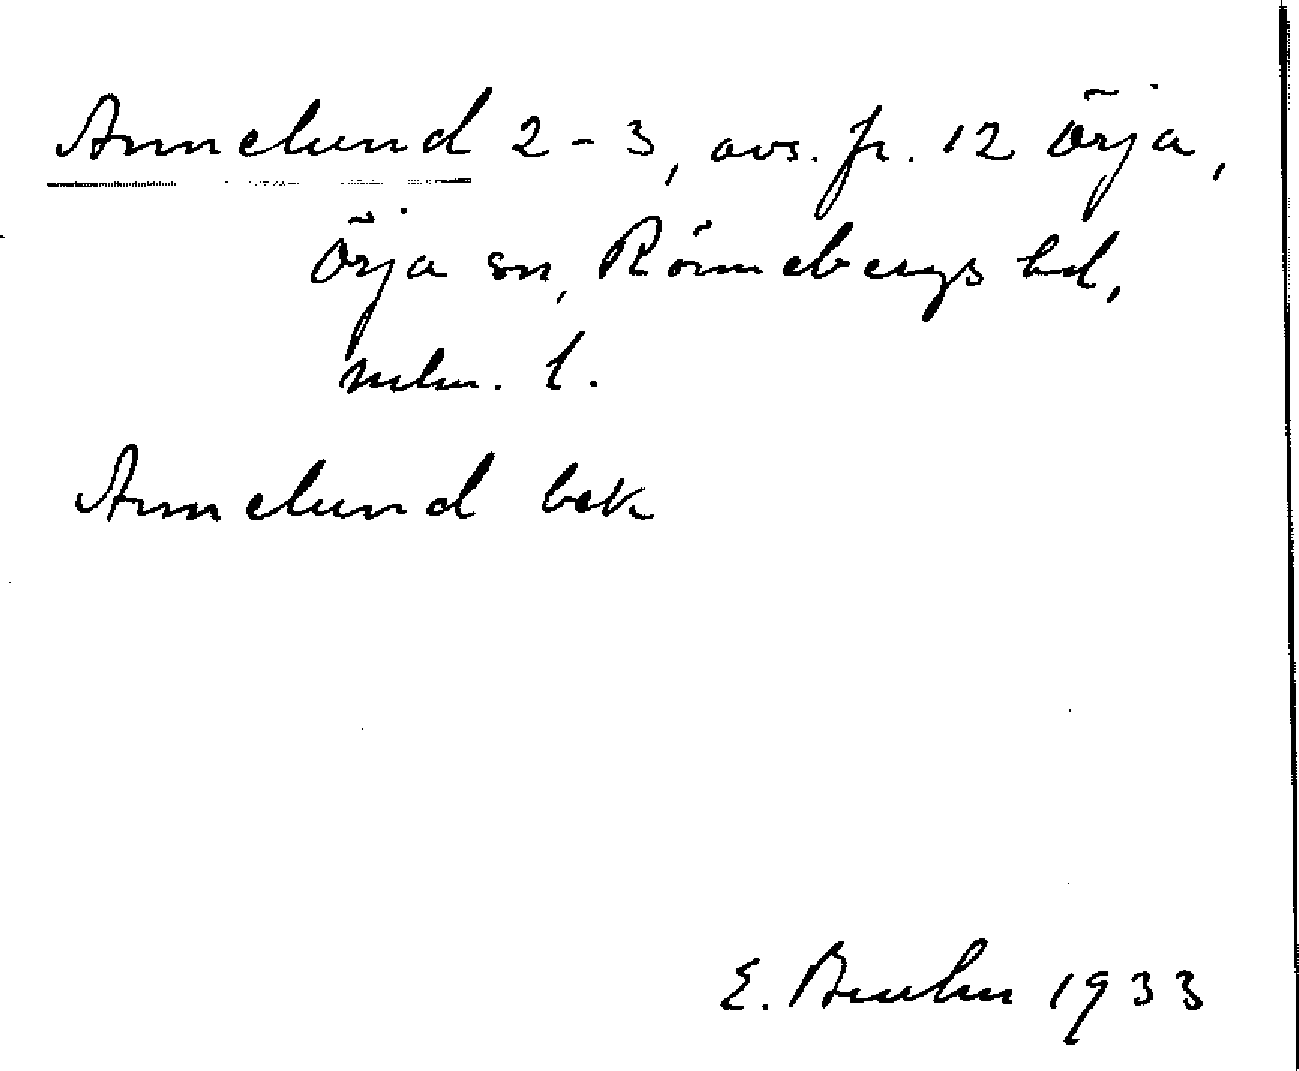 Annelund 2-3, avs. fr. 12 Örja,
Örja sn, Rönnebergs hd,
Mlm. l.
Annelund bek
E. Bruhn 1933